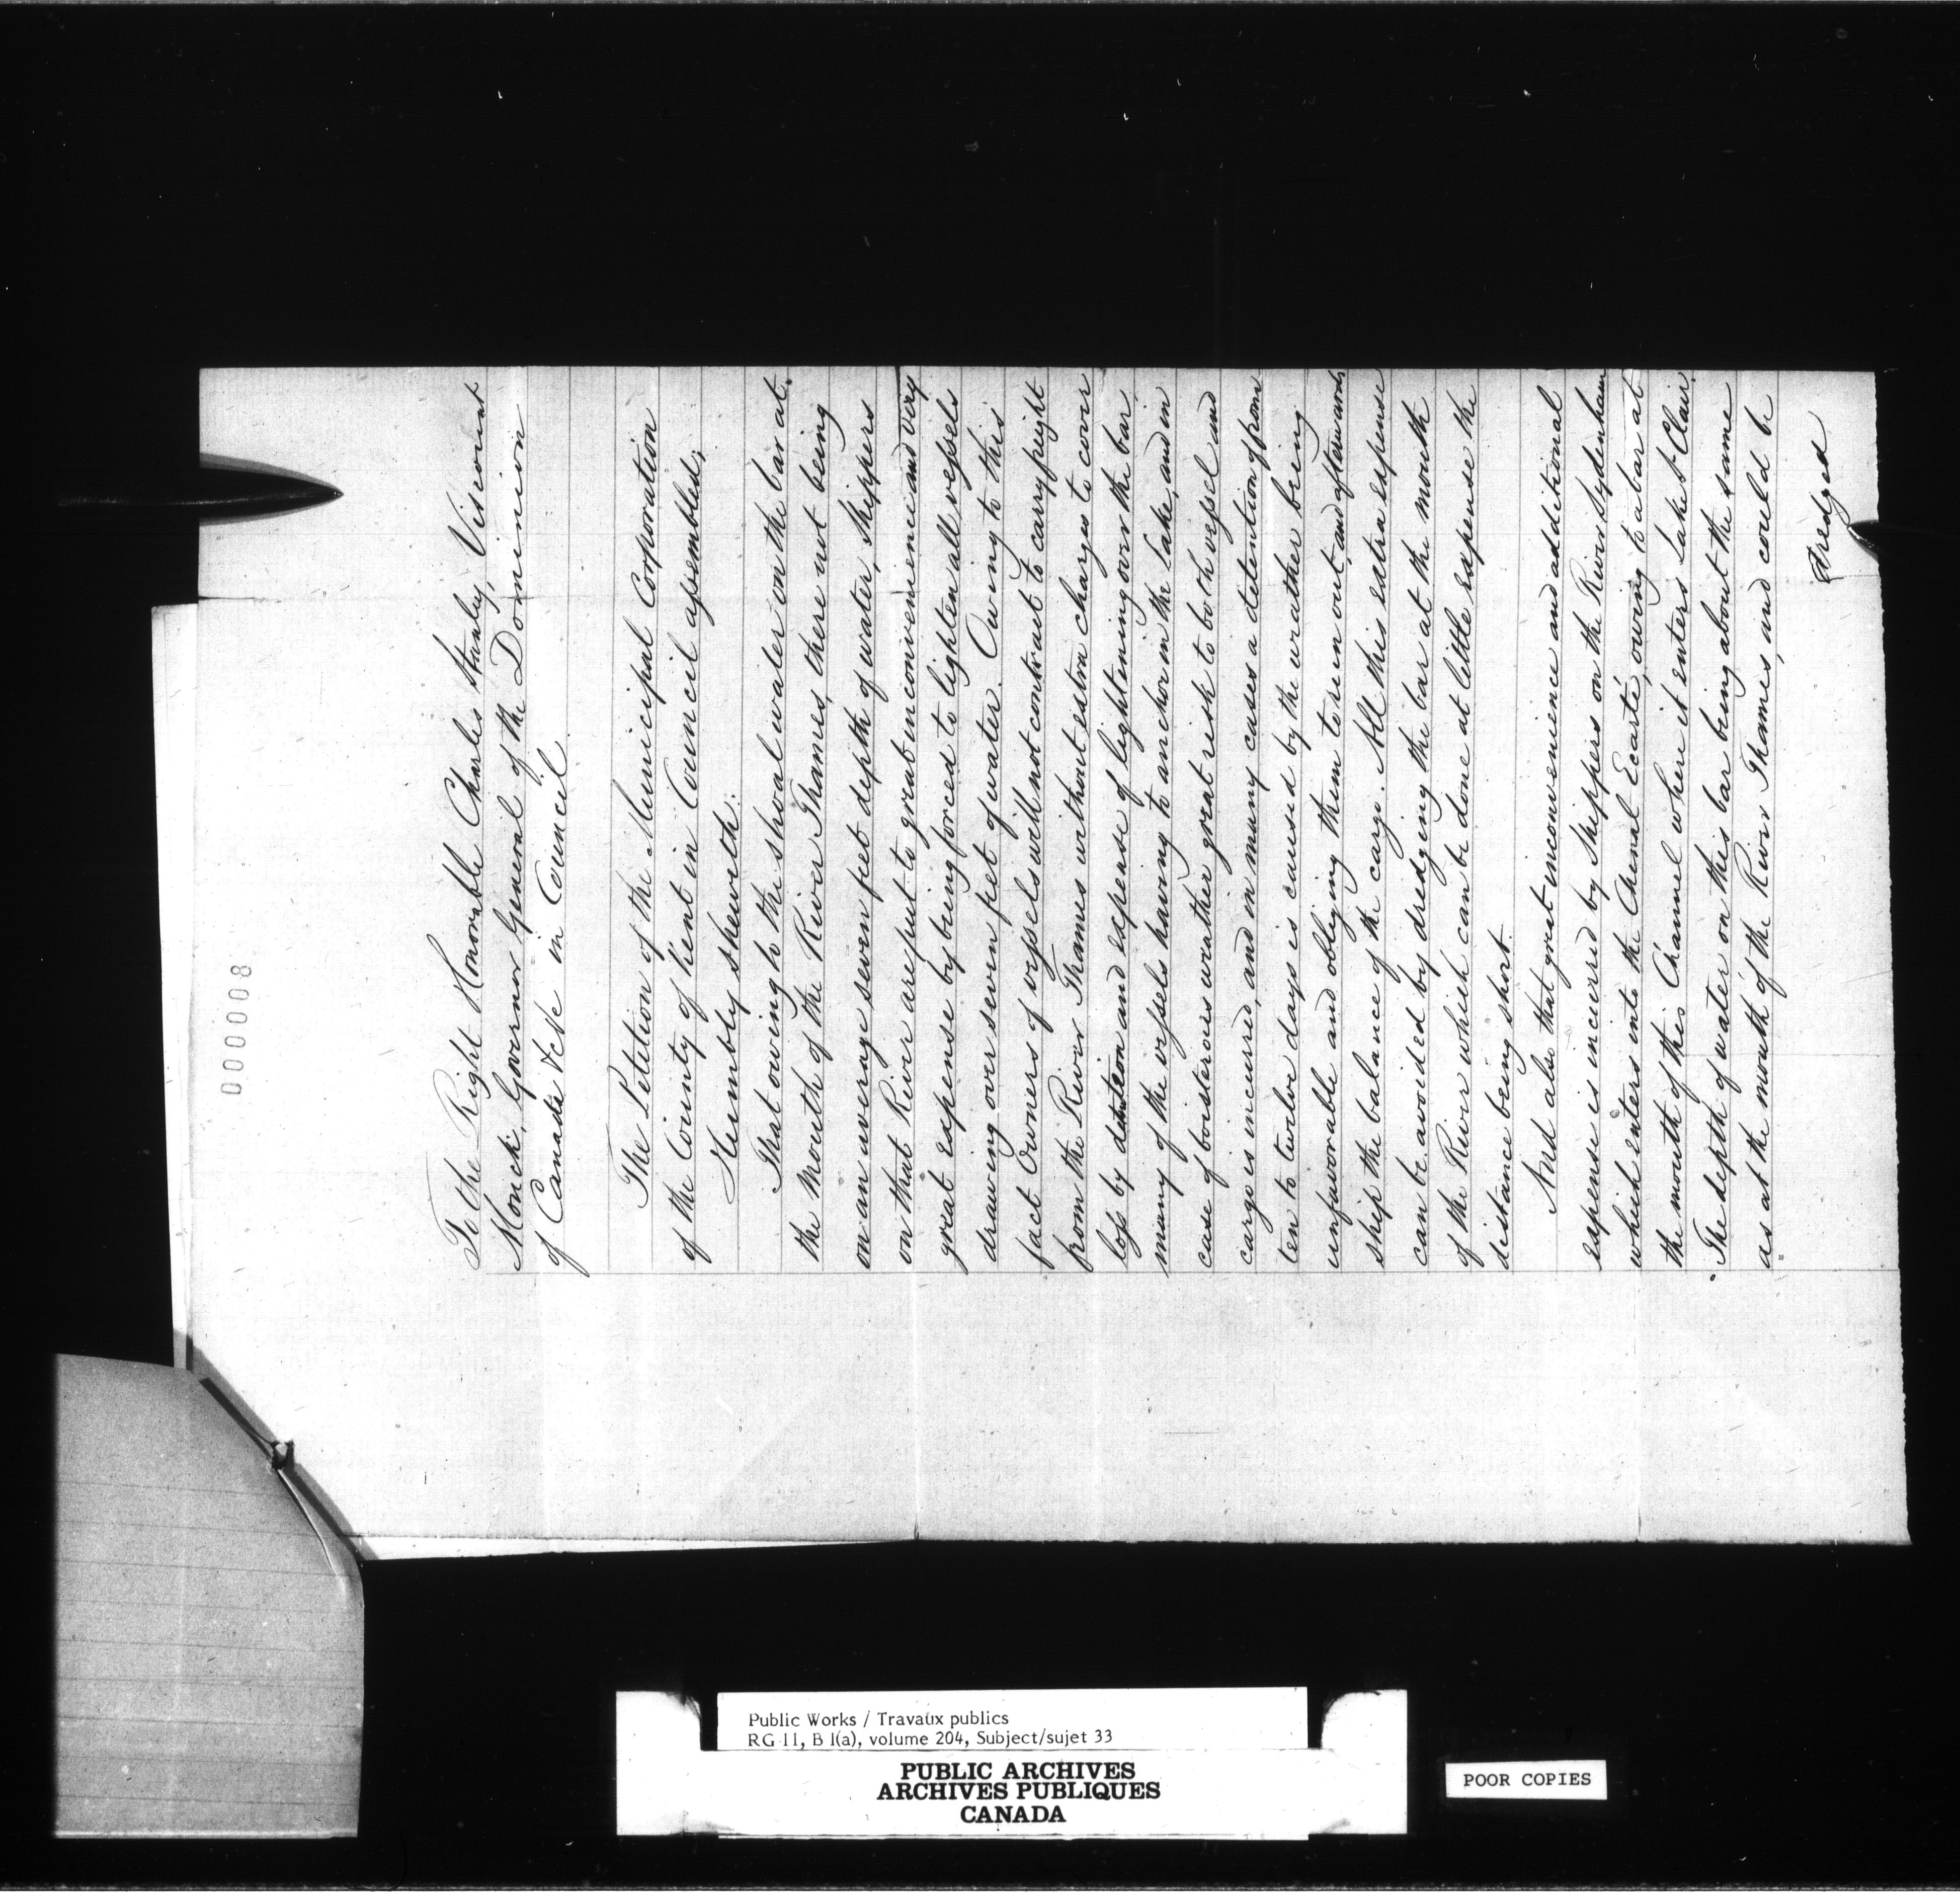 000008
To the Right Honorable Charles Stanley, Viscount
Monck, Governor General of the Dominion
of Canada &c &c in Council.
The Petition of the Municipal Corporation
of the County of Kent in Council assembled,
Humbly sheweth:
That owing to the shoal water on the bar at
the Mouth of the River Thames, there not being
on an average seven feet depth of water, Shippers
on that River are put to great inconvenience and very
great expense by being forced to lighten all vessels
drawing over seven feet of water. Owing to this
fact Owners of vessels will not contract to carry freight
from the River Thames without extra charges to cover
loss by detention and expense of lightening over the bar,
many of the vessels having to anchor in the lake, and in
case of boisterous weather great risk to both vessel and
cargo is incurred, and in many cases a detention from
ten to twelve days is caused by the weather being
unfavorable and obliging them to run out, and afterwards
ship the balance of the cargo. All this extra expense
can be avoided by dredging the bar at the mouth
of the River which can be done at little expense the
distance being short.
And also that great inconvenience and additional
expense is incurred by Shippers on the River Sydenham
which enters into the Chenal Ecarté, owing to a bar at
the mouth of this Channel where it enters Lake St Clair.
The depth of water on this bar being about the same
as at the mouth of the River Thames, and could be
dredged
Public Works / Travaux publics
RG 11, B 1(a), volume 204, Subject/sujet 33
PUBLIC ARCHIVES
ARCHIVES PUBLIQUES
CANADA
POOR COPIES